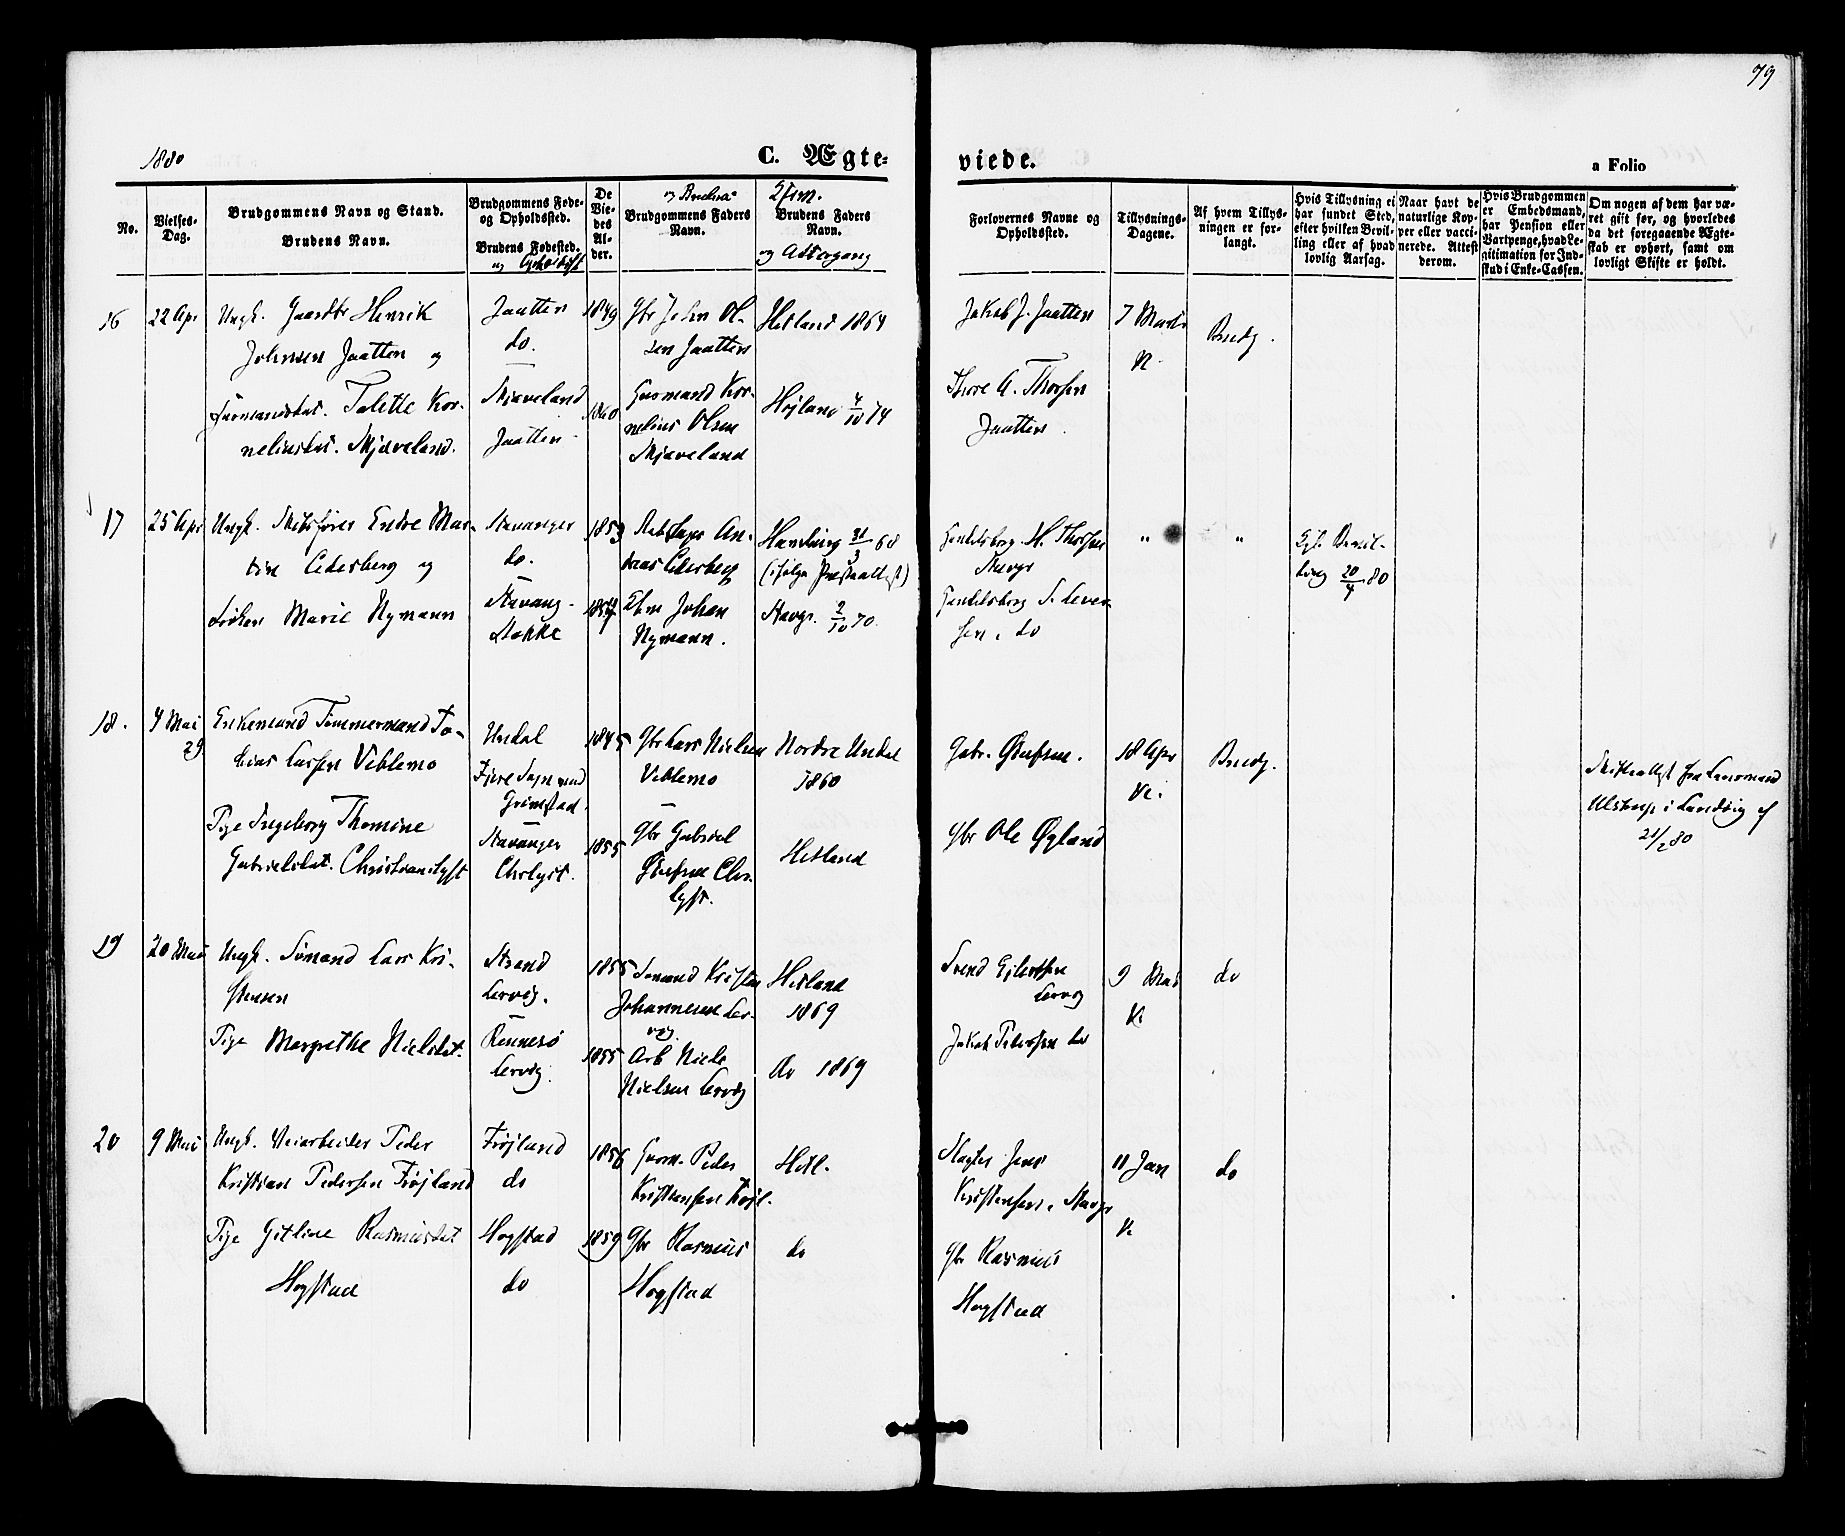 79
1880
C. Ægte-
viede.
a Folio
No.
Vielses-
Dag.
Brudgommens Navn og Stand.
Brudens Navn.
Brudgommens Føde-
og Opholdssted.
Brudens Fødested.
og
De
Vie-
des
Al-
der.
og Brudens
Brudgommens Faders
Navn.
Brudens Faders
Navn.
og
Forlovernes Navne og
Opholdssted.
Tillysnings-
Dagene.
Af hvem Tillys-
ningen er for-
langt.
Hvis Tillysning ei
har fundet Sted,
efter hvilken Bevil-
ling eller af hvad
lovlig Aarsag.
Naar havt de
naturlige Kop-
per eller vacci-
nerede. Attest
derom.
Hvis Brudgommen
er Embedsmand,
har Pension eller
Vartpenge, hvad Le-
gitimation for Ind-
skud i Enke-Cassen.
Om nogen af dem har væ-
ret gift før, og hvorledes
da det foregaaende Ægte-
skab er ophørt, samt om
lovligt Skifte er holdt.
16
22 Apr
Ungk. Gaardbr Henrik
Johnsen Jaatten og
Tolette Kor-
nelius dat. Skjæveland.
Jaatten
do.
Skjæveland
Jaatten
1849
1860
Gbr John Ol-
sen Jaatten
Kor-
nelius Olsen
Skjæveland
Hetland 1864
Højland 4/10 74
Jakob J. Jaatten
Thore A. Thorsen
Jaatten
7 Marts
K.
Brudg.
17
25 Apr
Ungk. Skibsfører Endre Mar-
tin Cedersberg og
Frøken Marie Nymann
Stavanger
do.
Stavang.
Stokke
1853
1857
An-
dreas Cedersberg
Johan
Nymann.
31/3 68
Stavgr. 2/10 70
H. Thorsen
Stavgr
do
"
"
Kgl. Bevil-
ling 20/4 80
18.
4 Mai
29
Enkemand Tømmermand To-
bias Larsen Veblemo
Pige Ingeborg Thomine
Gabrielsdat. Christianslyst
Undal
Fjere Sogn ved
Grimstad.
Stavanger
Chrlyst.
1845
1855
Gbr Lars Nielsen
Veblemo
Gbr Gabriel
Olufsen Chr.
lyst.
Nordre Undal
1860
Hetland
Gabr. Olufsen.
Gbr Ole Øgland
18 Apr
K.
Brudg.
Skifteattest fra Lensmand
Ulstrup i Landvig af
21/2 80
19
20 Mai
Ungk. Sømand Lars Kri-
stensen
Pige Margrethe Nielsdat.
Strand
Lervig.
Rennesø
Lervig.
1855
1855
Sømand Kristen
Johannesen Ler-
vig
Arb Niels
Nielsen Lervig
Hetland
1869
do 1869
Svend Eilertsen
Lervig
Jakob Pedersen do
9 Mai
K.
do
20
9 Mai
Ungk. Veiarbeider Peder
Kristian Pedersen Frøjland
Pige Gitline Rasmusdat
Hogstad
Frøjland
do
Hogstad
do
1856
1859
Peder
Kristensen Frøjl.
Gbr Rasmus
Hogstad
Hetl.
do
Slagter Jens
Kristensen, Stavgr
Gbr Rasmus
Hogstad
11 Jan
K.
do